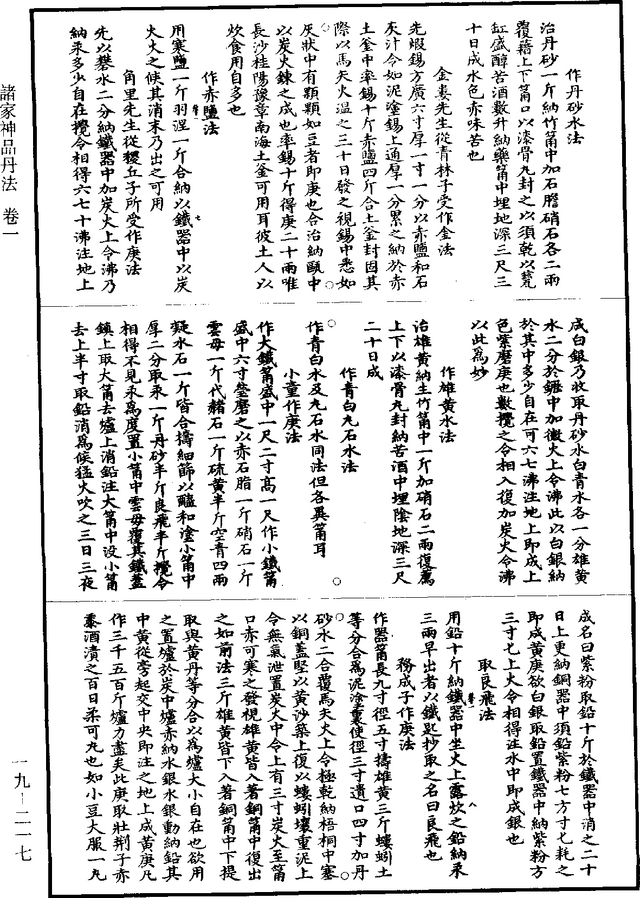 諸家神品丹法 卷一
一九—二一七
作丹砂水法
治丹砂一斤納竹筩中加石膽硝石各二兩
覆藉上下筩口以漆骨丸封之以須乾以甕
缸盛醇苦酒數升納藥筩中埋地深三尺三
十日成水色赤味苦也
金婁先生從青林子受作金法
先蝦錫方廣六寸厚一寸一分以赤鹽和石
灰汁令如泥塗錫上通厚一分累之納於赤
土釜中率錫十斤赤鹽四斤合土釜封因其
際以馬夭火溫之三十日發之視錫中悉如
灰狀中有顆顆如豆者即庚也合治納甌中
以炭火鍊之成也率錫十斤得庚二十兩唯
長沙桂陽豫章南海土釜可用耳彼土人以
炊食用自多也
作赤鹽法
用寒鹽一斤羽涅一斤合納以鐵器中以炭
火火之候其消末乃出之可用
角里先生從稷丘子所受作庚法
先以礬水二分納鐵器中加炭火上令沸乃
納汞多少自在攪令相得六七十沸注地上
成白銀乃收取丹砂水白青水各一分雄黃
水二分於鐺中加微火上令沸此以白銀納
於其中多少自在可六七沸注地上即成上
色紫磨庚也數攪之令相入復加炭火令沸
以此為妙
作雄黃水法
治雄黃納生竹筩中一斤加硝石二兩復薦
上下以漆骨丸封納苦酒中埋陰地深三尺
二十日成
作青白丸石水法
作青白水及丸石水同法但各異筩耳
小童作庚法
作大鐵筩盛中一尺二寸高一尺作小鐵筩
盛中六寸瑩磨之以赤石脂一斤硝石一斤
雲母一斤代赭石一斤硫黃半斤空青四兩
凝水石一斤皆合擣細篩以醯和塗小筩中
厚二分取汞一斤丹砂半斤良飛半斤攪令
相得不見汞為度置小筩中雲母覆其鐵蓋
鎮上取大筩去爐上消鉛注大筩中沒小筩
去上半寸取鉛消為候猛火吹之三日三夜
成名曰紫粉取鉛十斤於鐵器中消之二十
日上更納銅器中須鉛紫粉七方寸匕耗之
即成黃庚欲白銀取鉛置鐵器中納紫粉方
三寸七上火令相得注水中即成銀也
取良飛法
用鉛十斤納鐵器中坐火上露炊之鉛納汞
三兩早出者以鐵匙抄取之名曰良飛也
務成子作庚法
作器筩長九寸徑五寸擣雄黃三斤螻蚓土
等分合為泥塗裏使徑三寸遺口四寸加丹
砂水二合覆馬夭火上令極乾納梧桐中塞
以銅蓋堅以黃沙築上復以螻蚓壤重泥上
令無氣泄置炭火中令上有三寸炭火至筩
口赤可寒之發視雄黃皆入著銅筩中復出
之如前法三斤雄黃皆下入著銅筩中下提
取與黃丹等分合以為爐大小自在也欲用
之置爐於炭中爐赤納水銀水銀動納鉛其
中黃從旁起交中央即注之地上成黃庚凡
作三千五百斤爐力盡矣此庚取壯荊子赤
黍酒漬之百日柔可丸也如小豆大服一丸